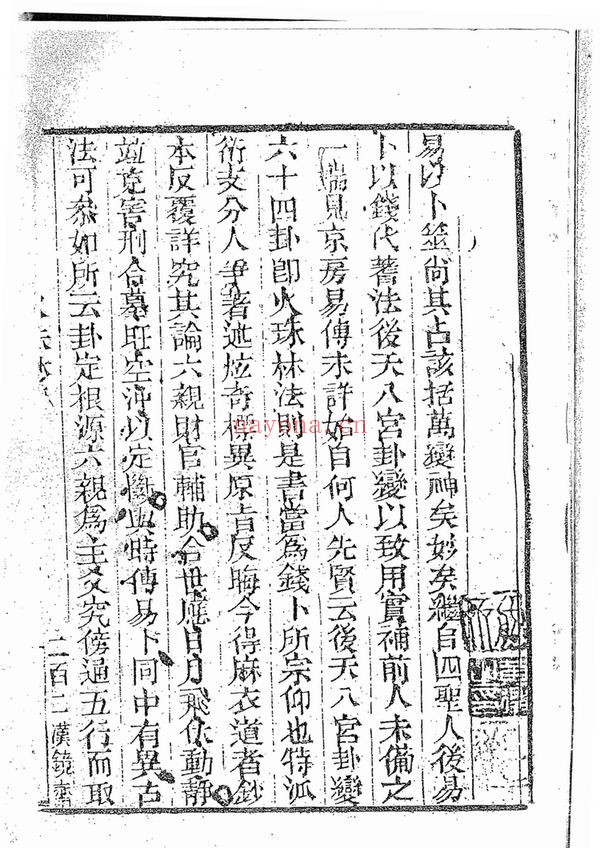 易以卜筮尚其占該括萬變神矣妙矣繼自四聖人後易
卜以錢代蓍法後天八宮卦變以致用實補前人未備之
一端見京房易傳未詳始自何人先賢云後天八宮卦變
六十四卦卽火珠林法則是書當爲錢卜所宗仰也特派
術支分人爭著述炫奇標異原旨反晦今得麻衣道者鈔
本反覆詳究其論六親財官輔助合世應日月飛伏動靜
竝尅害刑合墓旺空沖以定斷與時傳易卜同中有異古
法可叅如所云卦定根源六親爲主爻究傍通五行而取
二百二漢鏡齋
nayona.cn